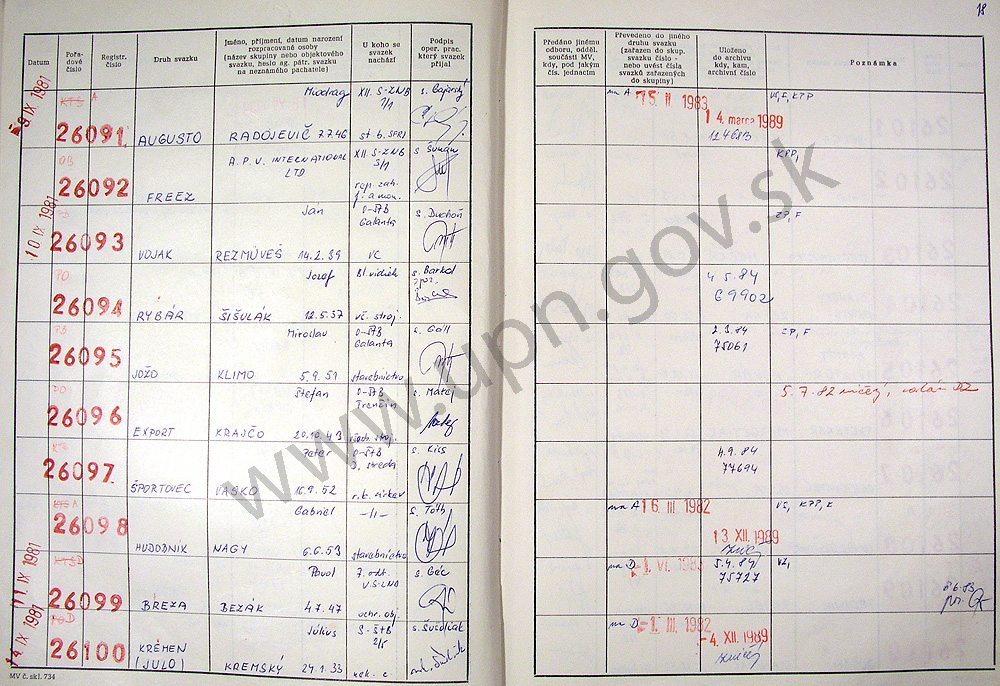 18
Datum
Pořa-
dové
číslo
Registr.
číslo
Druh svazku
Jméno, příjmení, datum narození
rozpracované osoby
(název skupiny nebo objektového
svazku, heslo ag. pátr. svazku
na neznámého pachatele)
U koho se
svazek
nachází
Podpis
oper. prac.
který svazek
přijal
Předáno jinému
odboru, odděl.
součásti MV,
kdy, pod jakým
čís. jednacím
Převedeno do jiného
druhu svazku
(zařazen do skup.
svazku číslo -
nebo uvést čísla
svazků zařazených
do skupiny)
Uloženo
do archivu
kdy, kam,
archivní číslo
Poznámka
9 IX 1981
KTS A
26091
AUGUSTO
Miodrag
RADOJEVIČ 7.7.46
XII. S-ZNB
7/1
s. Gajarský
na A 15. II. 1983
14. marca 1989
124683
VŠ, E, KTP
OB
26092
FREEZ
A.P.V. INTERNATIONAL
LTD
XII S-ZNB
3/1
s. Šuman
KPP,
10 IX 1981
26093
VOJAK
Jan
REZMÜVEŠ 14.2.39
O-ŠtB
Galanta
VC
s. Duchoň
EP, F
PO
26094
RYBÁR
Jozef
ŠIŠULÁK 12.5.37
Bl. vidiek
vš. stroj.
s. Barkol
4 5.84
69902
26095
JOŽO
Miroslav
KLIMO 5.9.51
O-ŠtB
Galanta
stavebníctvo
s. Gáll
2.3.84
75061
EP, F
26096
EXPORT
Štefan
KRAJČO 20.10.43
O-ŠtB
Trenčín
všeob. stroj.
s. Matej
5.7.82
26097
ŠPORTOVEC
Peter
VAŠKO 16.9.52
O-ŠtB
D. Streda
r.k. cirkev
s. Kiss
4.9.84
77694
KTS A
26098
HUDOBNÍK
Gabriel
NAGY 6.6.53
-//-
stavebníctvo
s. Tóth
na A 16. III 1982
13. XII. 1989
zničený
VŠ, KPP, E
11. IX 1981
KTS D
26099
BREZA
Pavol
BEZÁK 4.7.47
7. odb.
ochr. obj.
s. Géc
na D -1. VI. 1983
5.4.84
75727
VZ,
8.6.83
14. IX 1981
26100
KRÉMEN
(JULO)
Július
KREMSKÝ 24.1.33
S-ŠtB
2/5
na D -1. III. 1982
-4. XII. 1989
zničený
MV č. skl. 734
www.upn.gov.sk